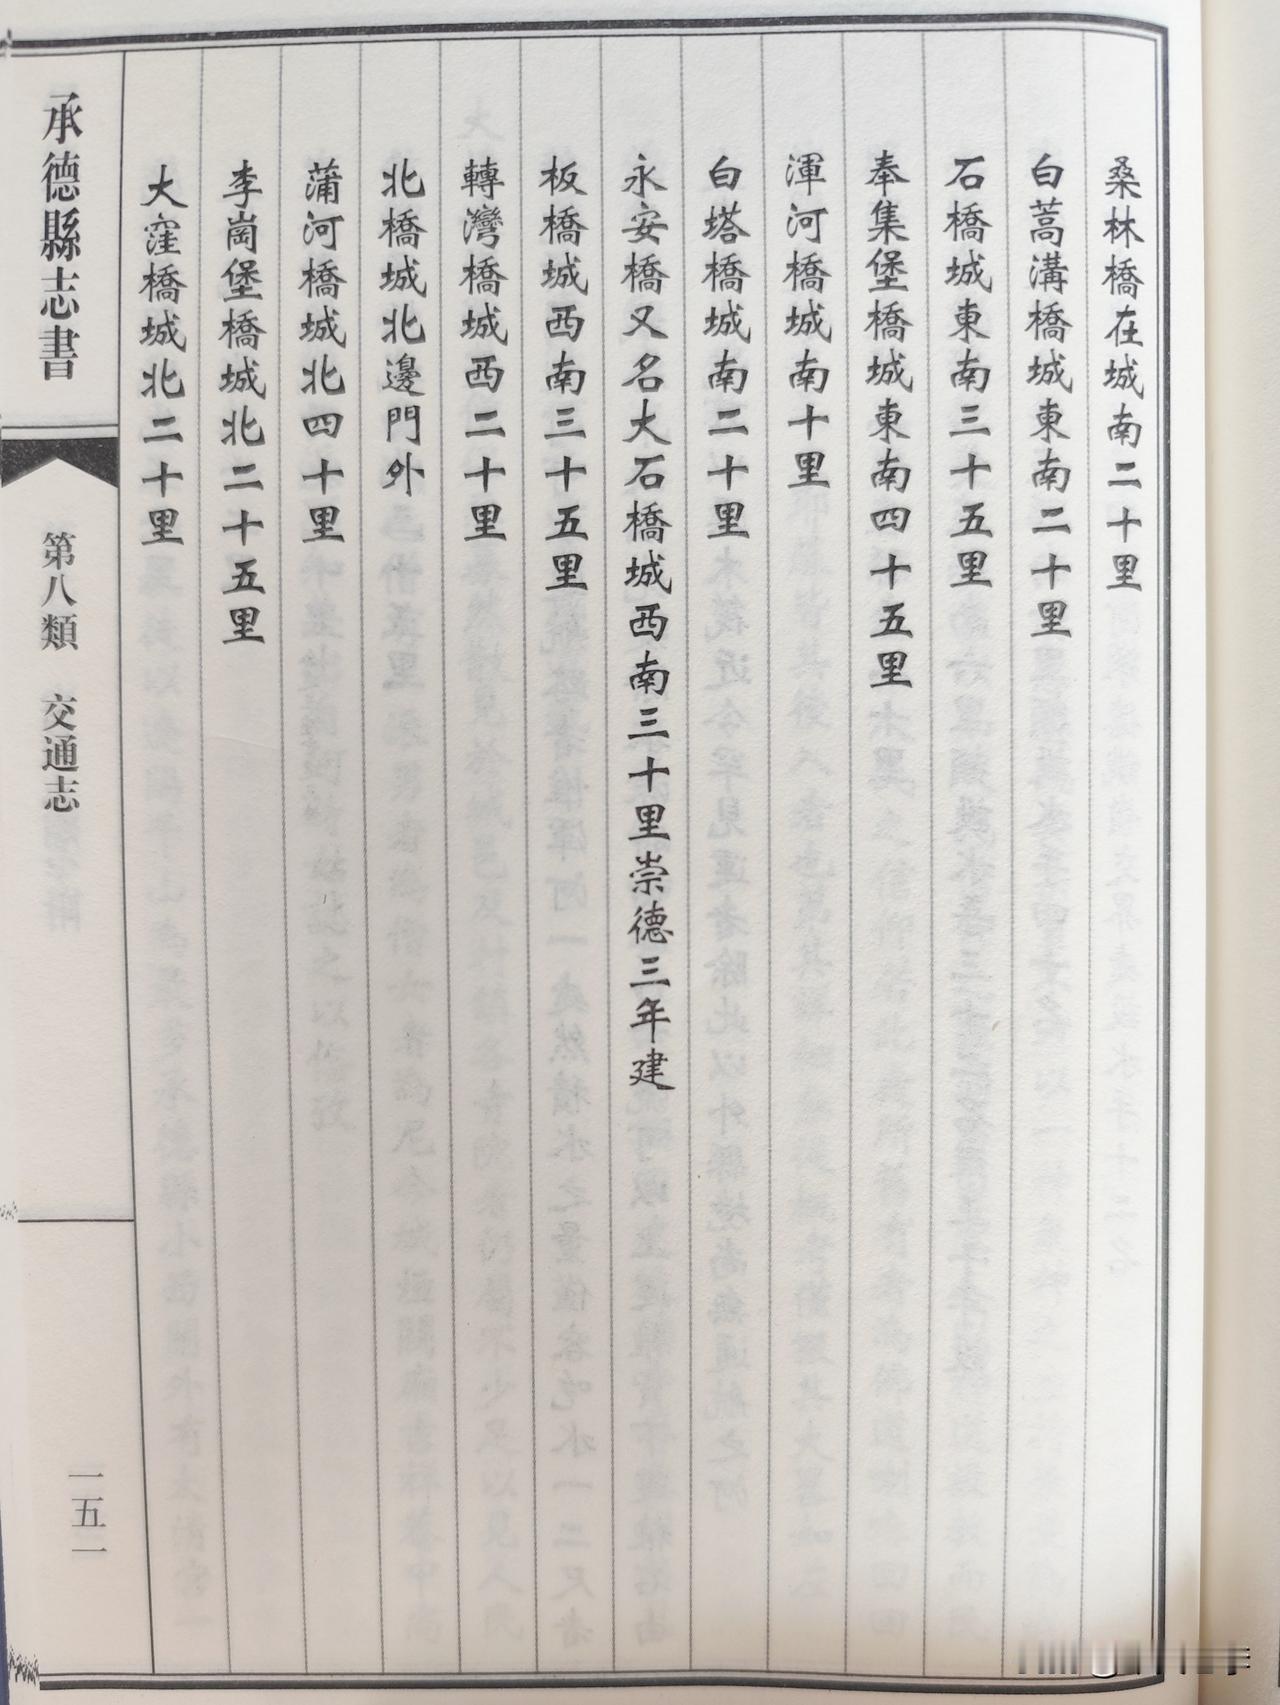 桑林橋在城南二十里
白蒿溝橋城東南二十里
石橋城東南三十五里
奉集堡橋城東南四十五里
渾河橋城南十里
白塔橋城南二十里
永安橋又名大石橋城西南三十里崇德三年建
板橋城西南三十五里
轉灣橋城西二十里
北橋城北邊門外
蒲河橋城北四十里
李崗堡橋城北二十五里
大窪橋城北二十里
承德縣志書
第八類 交通志
一五一